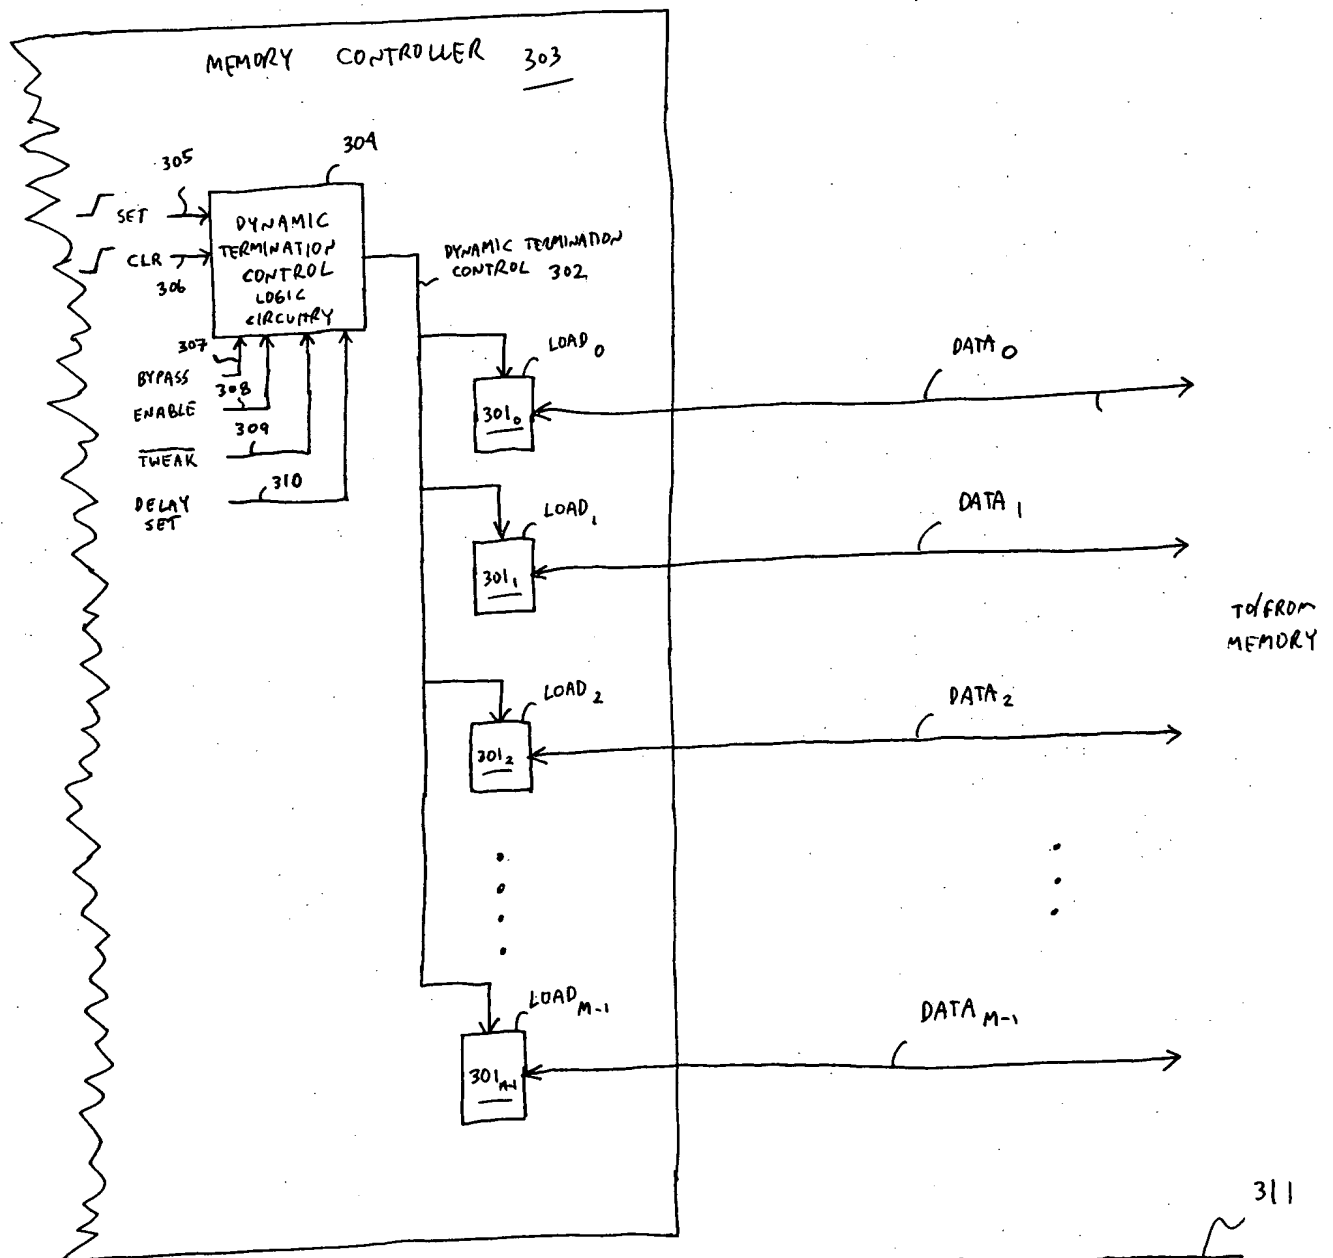 MEMORY CONTROLLER 303
304
305
SET
CLR
306
DYNAMIC
TERMINATION
CONTROL
LOGIC
CIRCUITRY
DYNAMIC TERMINATION
CONTROL 302
307
BYPASS
308
ENABLE
309
TWEAK
310
DELAY
SET
LOAD0
3010
DATA0
LOAD1
3011
DATA1
TO/FROM
MEMORY
LOAD2
3012
DATA2
LOADM-1
301M-1
DATAM-1
311